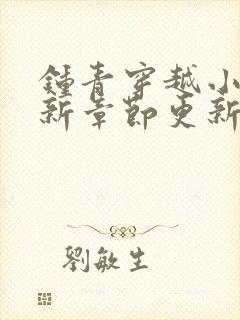 鍾青穿越小
新章節更新
劉敏生